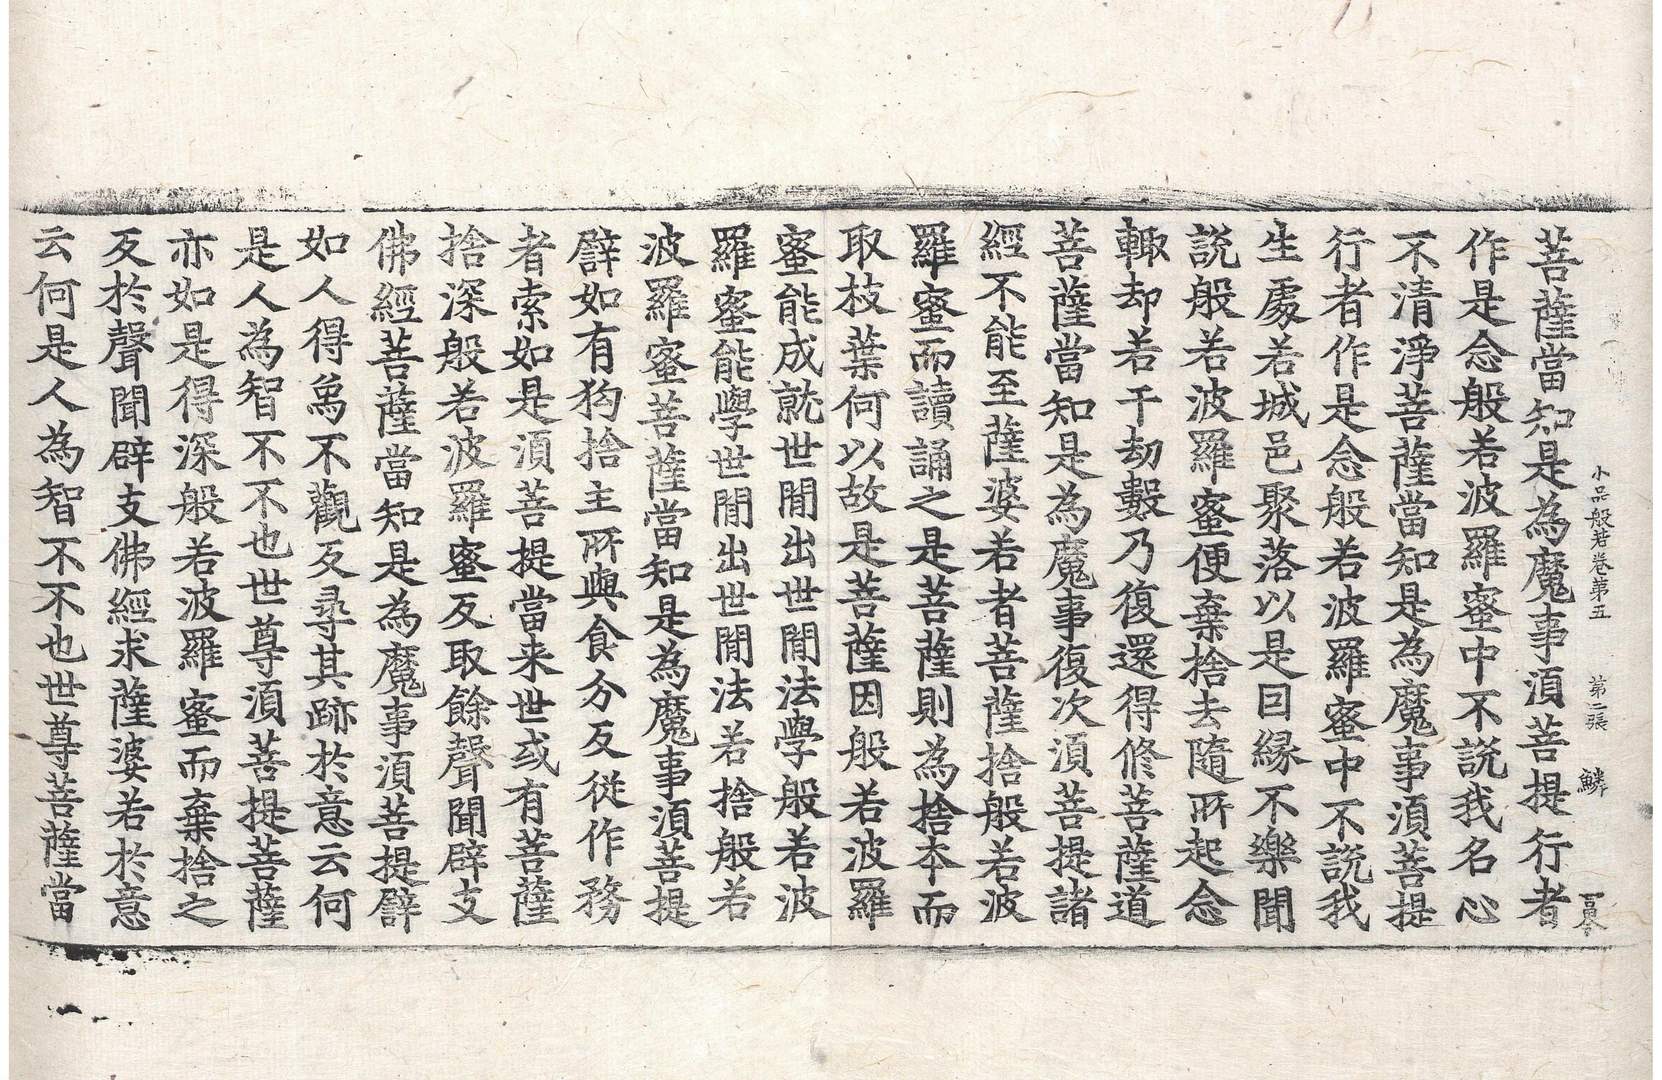 小品般若卷第五 第二張 鱗
菩薩當知是為魔事湏菩提行者
作是念般若波羅蜜中不說我名心
不清淨菩薩當知是為魔事湏菩提
行者作是念般若波羅蜜中不說我
生處若城邑聚落以是因緣不樂聞
說般若波羅蜜便棄捨去隨所起念
輙却若干劫數乃復還得修菩薩道
菩薩當知是為魔事復次湏菩提諸
經不能至薩婆若者菩薩捨般若波
羅蜜而讀誦之是菩薩則為捨本而
取枝葉何以故是菩薩因般若波羅
蜜能成就世閒出世閒法學般若波
羅蜜能學世閒出世閒法若捨般若
波羅蜜菩薩當知是為魔事湏菩提
譬如有狗捨主所與食分反從作務
者索如是湏菩提當来世或有菩薩
捨深般若波羅蜜反取餘聲聞辟支
佛經菩薩當知是為魔事湏菩提譬
如人得象不觀反尋其跡於意云何
是人為智不不也世尊湏菩提菩薩
亦如是得深般若波羅蜜而棄捨之
反於聲聞辟支佛經求薩婆若於意
云何是人為智不不也世尊菩薩當